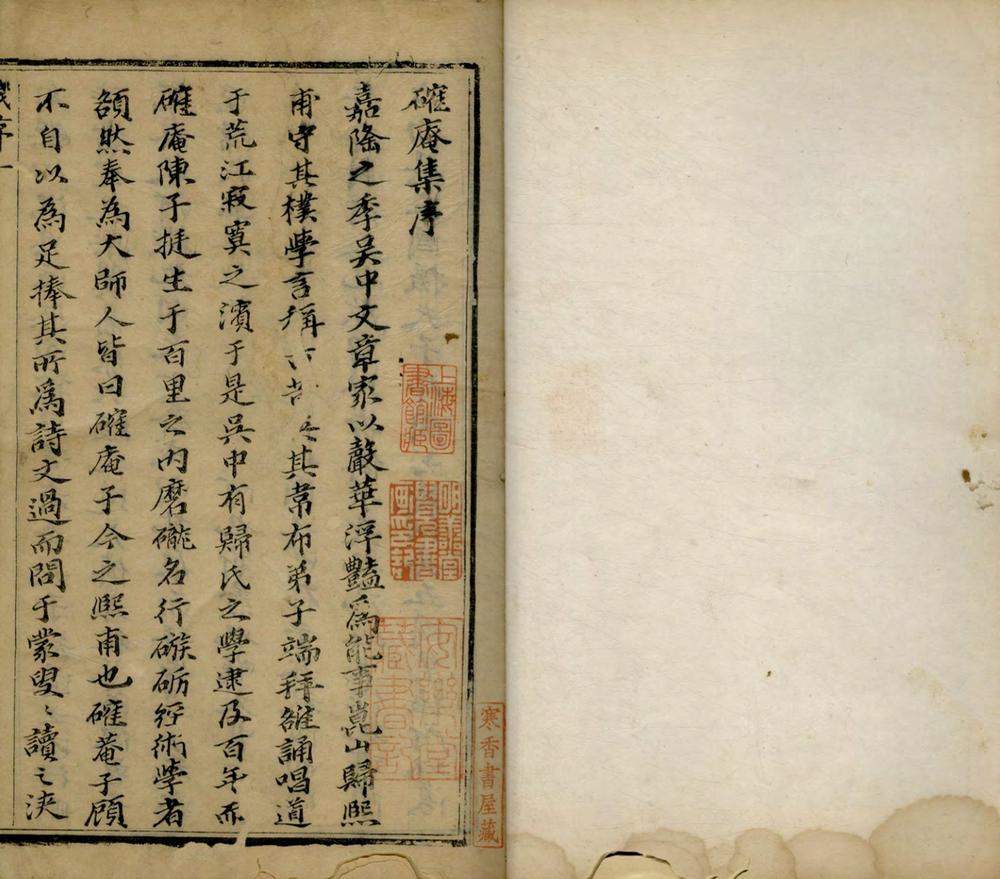 確庵集序
嘉隆之季吳中文章家以鞶華浮豔為能事崑山歸熙
甫守其樸學言稱其常布弟子端拜雒誦唱道
于荒江寂寞之濱于是吳中有歸氏之學逮及百年而
確庵陳子挺生于百里之內磨礲名行磞砺經術學者
頟然奉為大師人皆曰確庵子今之熙甫也確菴子顧
不自以為足捧其所為詩文過而問于蒙叟〻讀之浹
序一
上海圖書館藏
寒香書屋藏